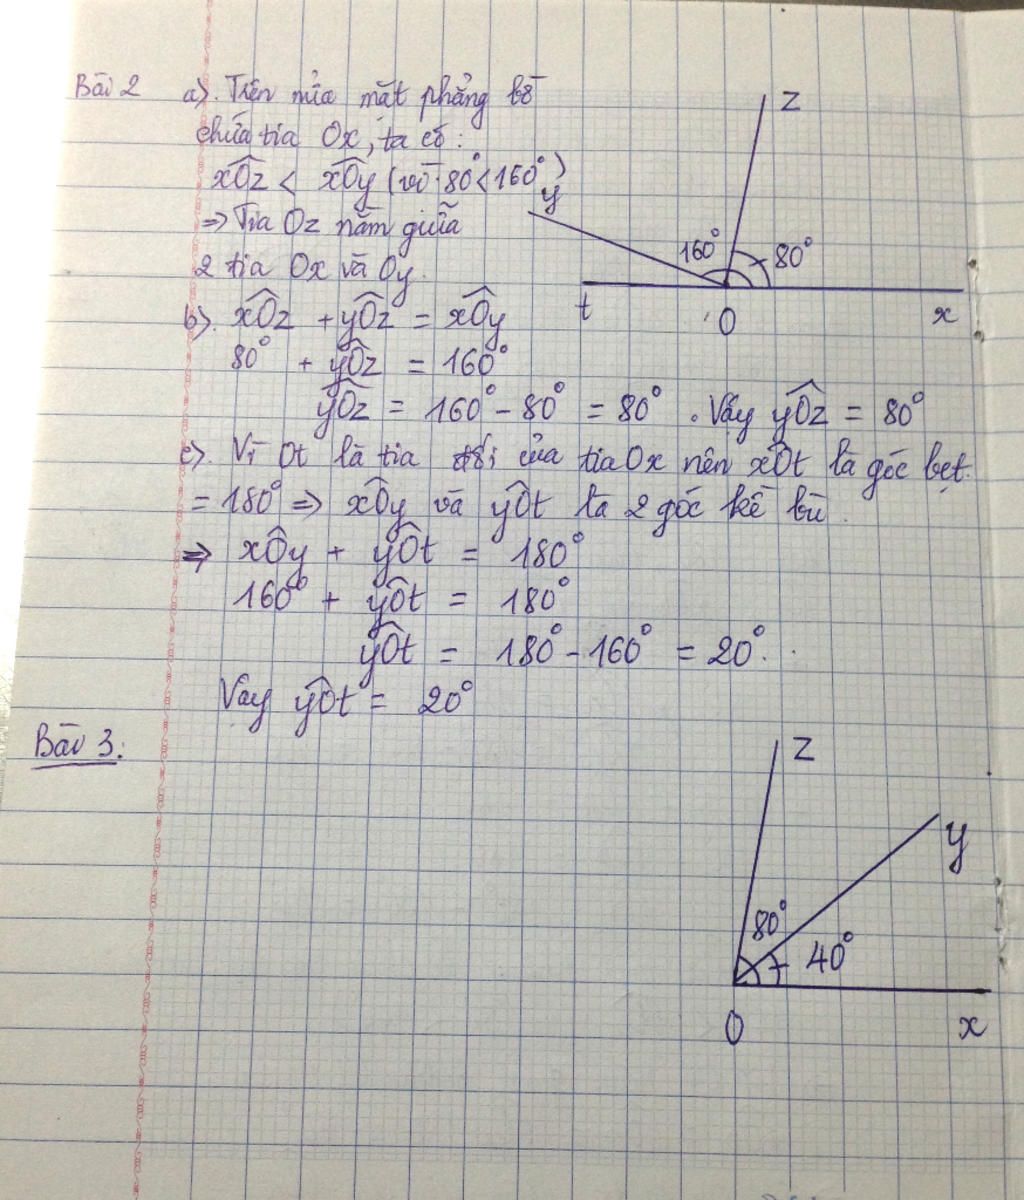 Bài 2 a). Trên nửa mặt phẳng bờ
chứa tia Ox, ta có:
xÔz < xÔy (vì 80° < 160°)
=> Tia Oz nằm giữa
2 tia Ox và Oy.
z
y
160°
80°
t
O
x
b). xÔz + yÔz = xÔy
80° + yÔz = 160°
yÔz = 160° - 80° = 80°. Vậy yÔz = 80°
c). Vì Ot là tia đối của tia Ox nên xÔt là góc bẹt.
= 180° => xÔy và yÔt là 2 góc kề bù.
=> xÔy + yÔt = 180°
160° + yÔt = 180°
yÔt = 180° - 160° = 20°.
Vậy yÔt = 20°
Bài 3:
z
y
80°
40°
O
x